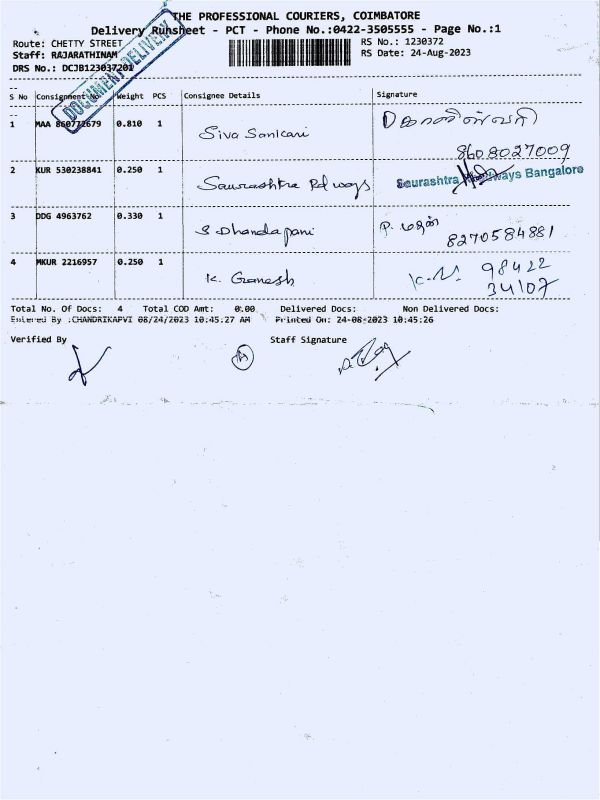 THE PROFESSIONAL COURIERS, COIMBATORE
Delivery Runsheet - PCT - Phone No.:0422-3505555 - Page No.:1
Route: CHETTY STREET
RS No.: 1230372
Staff: RAJARATHINAM
RS Date: 24-Aug-2023
DRS No.: DCJB123037201
DOCUMENT DELIVERY
S No Consignment No Weight PCS Consignee Details Signature
1 MAA 860772679 0.810 1 Siva Sankari
8608027009
2 KUR 530238841 0.250 1 Saurashtra Rdways Saurashtra Bangalore
3 DDG 4963762 0.330 1 S Dhandapani
8270584881
4 MKUR 2216957 0.250 1 K. Ganesh 98422
34107
Total No. Of Docs: 4 Total COD Amt: 0.00 Delivered Docs: Non Delivered Docs:
Entered By :CHANDRIKAPVI 08/24/2023 10:45:27 AM Printed On: 24-08-2023 10:45:26
Verified By Staff Signature